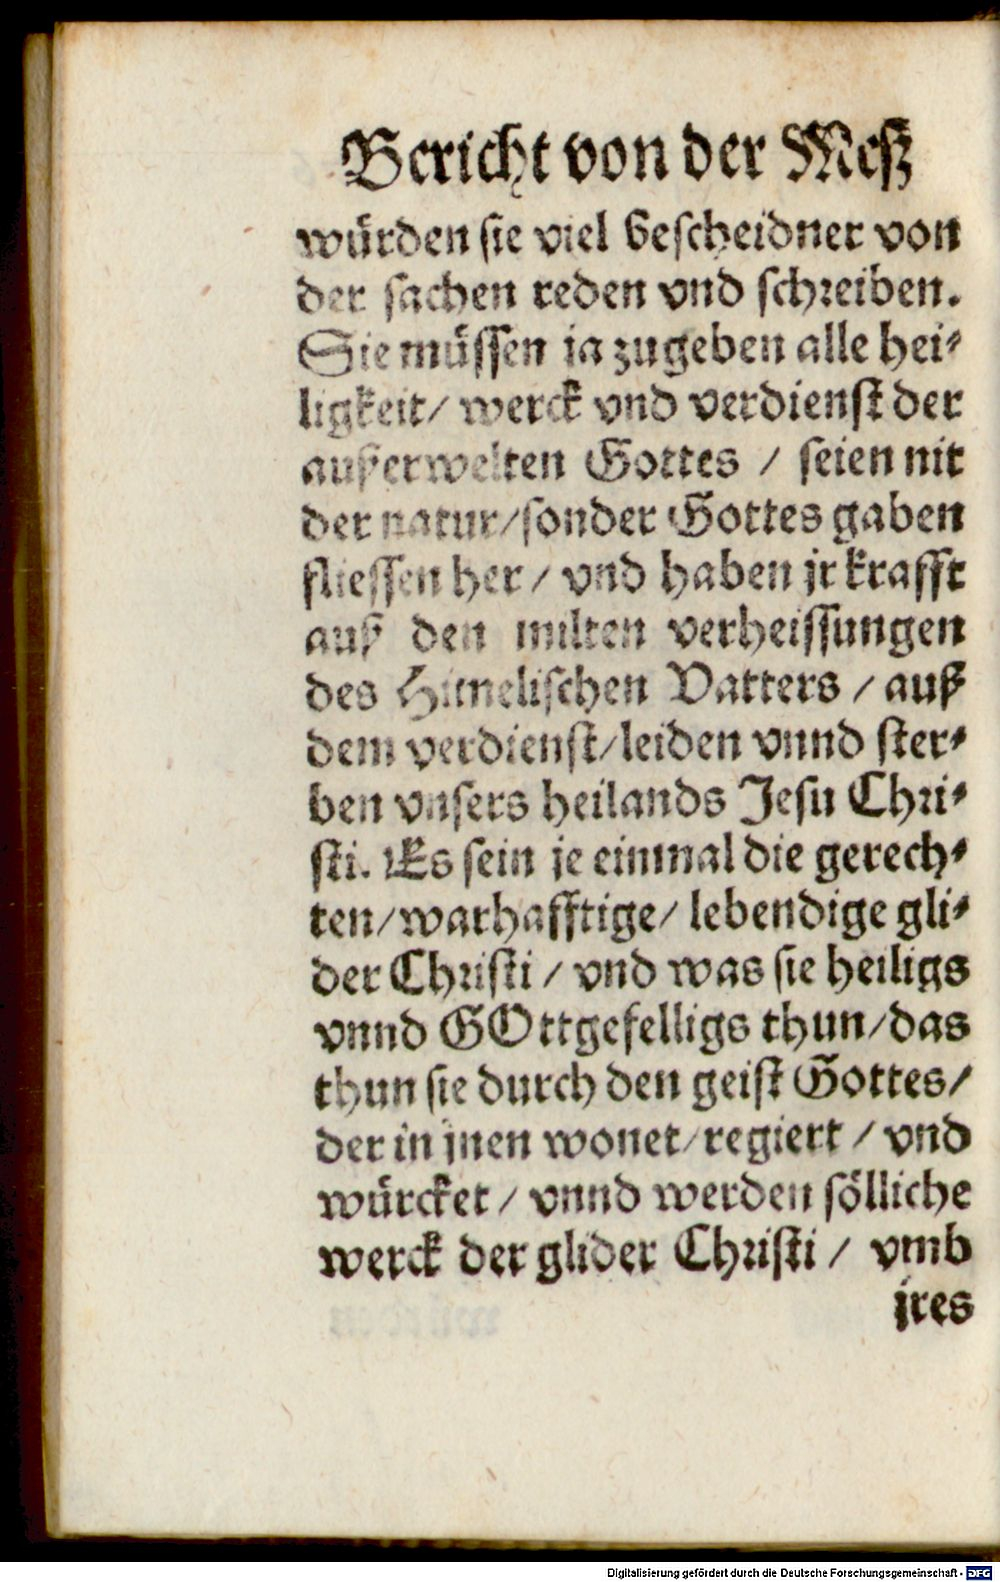 Bericht von der Meß
würden sie viel bescheidner von
der sachen reden vnd schreiben.
Sie müssen ja zugeben alle hei-
ligkeit/ werck vnd verdienst der
außerwelten Gottes / seien nit
der natur/sonder Gottes gaben
fliessen her / vnd haben jr krafft
auß den milten verheissungen
des Himelischen Vatters / auß
dem verdienst/leiden vnnd ster-
ben vnsers heilands Jesu Chri-
sti. Es sein je einmal die gerech-
ten/warhafftige/ lebendige gli-
der Christi / vnd was sie heiligs
vnnd GOttgefelligs thun/das
thun sie durch den geist Gottes/
der in jnen wonet/regiert / vnd
würcket / vnnd werden sölliche
werck der glider Christi / vmb
jres
Digitalisierung gefördert durch die Deutsche Forschungsgemeinschaft - DFG